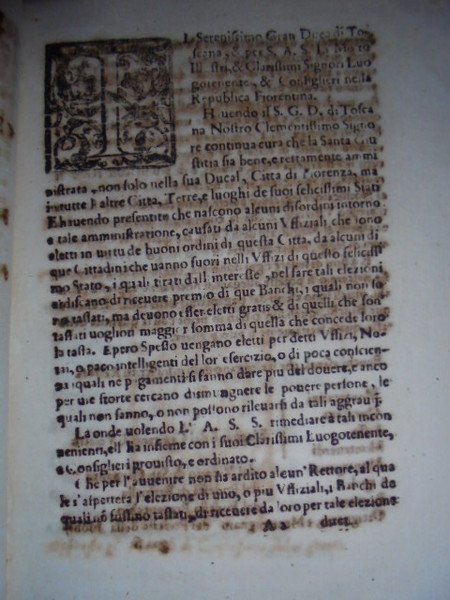 L Serenissimo Gran Duca di Tos
cana, & per S. A. S. Li Mol o
Ill stri, & Clarissimi Signori Luo
gotenente, & Consiglieri nella
Republica Fiorentina.
H uendo il S. G. D. di Tosca
na Nostro Clementissimo Signo
re continua cura che la Santa Giu
stitia sia bene, e rettamente ammi
nistrata, non solo nella sua Ducal, Città di Fiorenza, ma
in tutte l'altre Città, Terre, e luoghi de suoi felicissimi Stati
E hauendo presentito che nascono alcuni disordini intorno
a tale amministratione, causati da alcuni Vffiziali che sono
eletti in virtù de buoni ordini di questa Città, da alcuni di
que Cittadini che uanno fuori nelli Vffizi di questo felicissi
mo Stato, i quali tirati dall interesse, nel fare tali elezioni
ardiscano di riceuere premio di que Banchi, i quali non so
no tassati, ma deuono esser eletti gratis & di quelli che son
tassati uogliori maggior somma di quella che concede loro
la tassa. E però Spesso vengano eletti per detti Vffizi, No
tai, o poco intelligenti del lor esercizio, o di poca conscien
za i quali ne pagamenti si fanno dare più del douere, e anco
per uie storte cercano di smugnere le pouere persone, le
quali non sanno, o non possono rileuarsi da tali aggrauj.
La onde uolendo L' A. S. S. rimediare à tali incon
uenienti, ell ha insieme con i suoi Clarissimi Luogotenente,
e Consiglieri prouisto, e ordinato.
Che per l'auuenire non sia ardito alcun' Rettore, al qua
le s'aspetterà l'elezione di uno, o più Vffiziali, i Banchi de
quali nō fussino tassati, di riceuere da loro per tale elezione
A a duer.